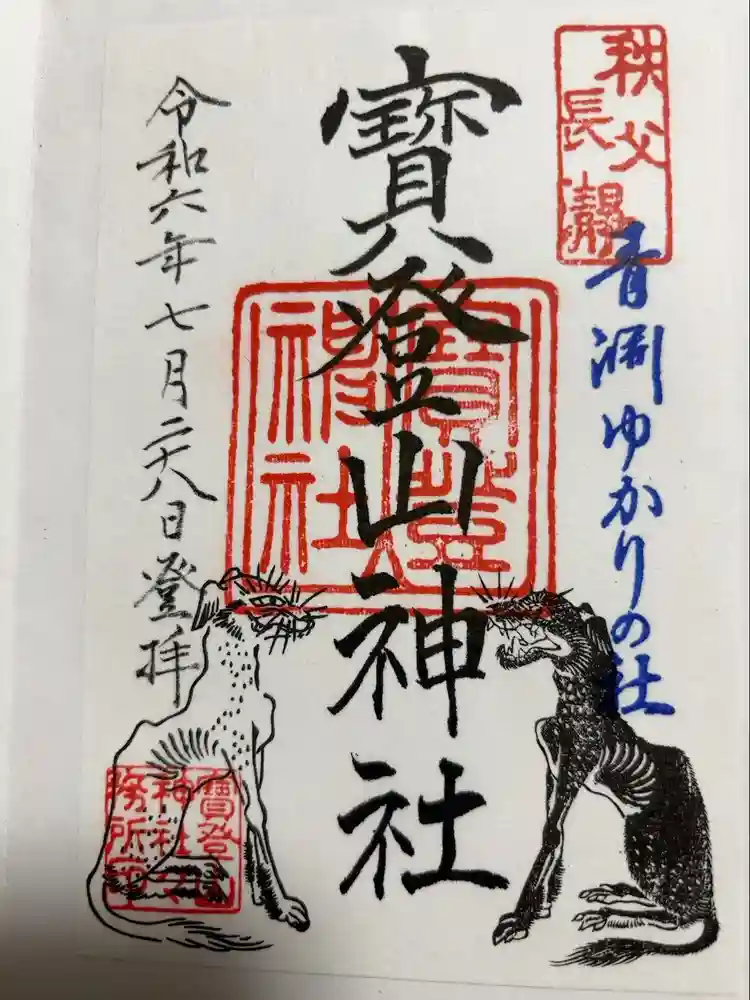 秩父
長瀞
青淵ゆかりの社
寳登山神社
寳登山
神社
令和六年七月二十八日登拝
寳登山
神社
務所